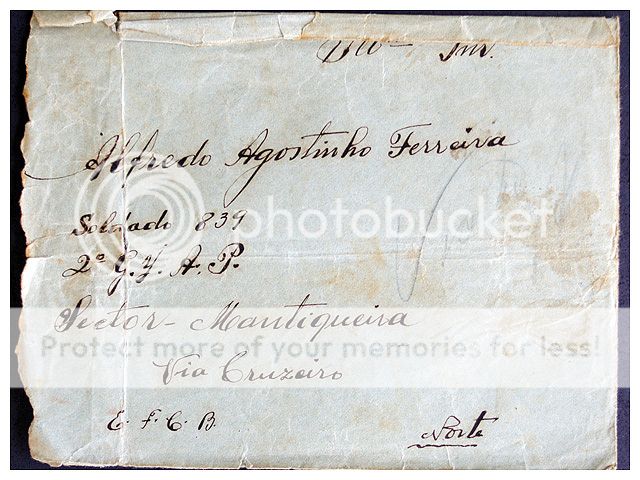 Illmo Snr.
Alfredo Agostinho Ferreira
Soldado 839
2º G. I. A. P.
photobucket
Sector - Mantiqueira
Protect more of your memories for less!
Via Cruzeiro
E. F. C. B.
Norte